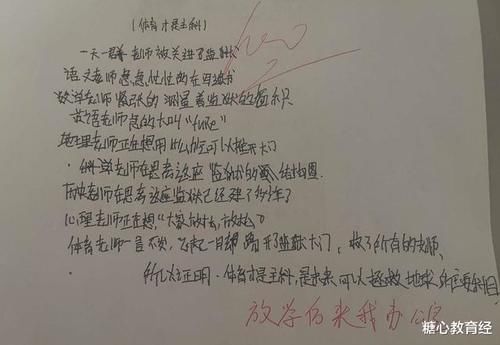 (体育才是主科)
一天一群老师被关进了监狱
语文老师急急忙忙的在写遗书
数学老师紧张的测量着监狱的面积
英语老师急的大叫"fuke"
地理老师正在想用什么能可以推开大门
老师在思考这座监狱的结构图
历史老师在思考这座监狱已经建了多少年了
心理老师正在想,"大家放松,放松"
体育老师一言不发,飞起一脚踢开了监狱大门,救了所有的老师。
所以证明,体育才是主科,是未来可以拯救地球的主要科目
放学后来我办公室
糖心教育经